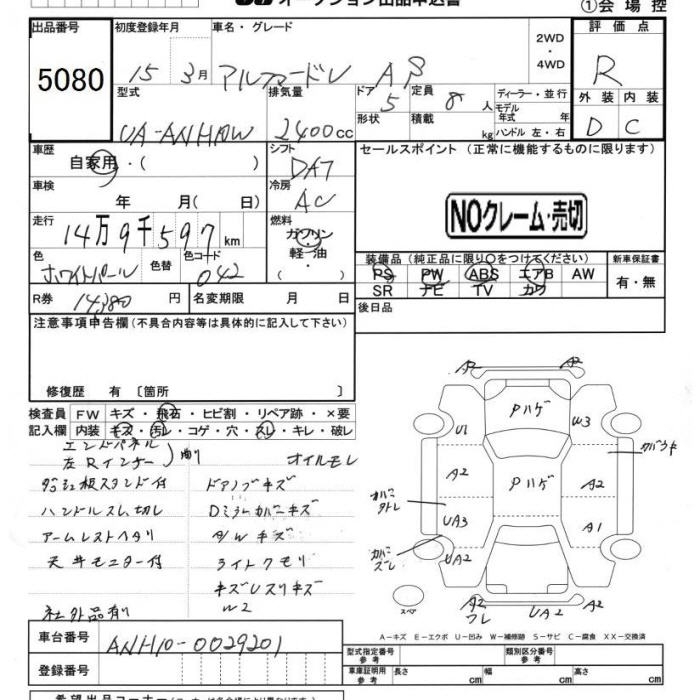 オークション出品申込書 ①会場控
出品番号 初度登録年月 車名・グレード 2WD ・ 4WD 評価点
5080 15 3月 アルファードV AS R
型式 排気量 ドア 定員 ディーラー・並行 外装 内装
UA-ANH10W 2400cc 5 8人 モデル年式 年 D C
形状 積載 kg ハンドル 左・右
車歴 シフト セールスポイント (正常に機能するものに限ります)
自家用・( ) DAT
車検 冷房
年 月( 日) AC NOクレーム・売切
走行 燃料
14万9千597km ガソリン・軽・油
色 色替 色コード 装備品(純正品に限り〇をつけてください) 新車保証書
ホワイトパール 042 PS PW ABS エアB AW 有・無
SR ナビ TV カワ
R券 14,380円 名変期限 月 日 後日品
注意事項申告欄(不具合内容等は具体的に記入して下さい)
修復歴 有 〔箇所 〕
検査員 FW キズ・飛石・ヒビ割・リペア跡・×要
記入欄 内装 キズ・汚レ・コゲ・穴・スレ・キレ・破レ
エンドパネル
左Rインナー 有 オイルモレ
ドアノブキズ
ハンドルスレ切レ Dミラーカバーキズ
アームレストヘタリ A/Wキズ
天井モニター付 ライトクモリ
キズUスリキズ
社外品有 W2
A2 A2
Pハゲ
U1 W3
A2 Pハゲ A2
UA3 A1
カバーズレ UA2
スペア A2 フレ UA2 A2
A-キズ E-エクボ U-凹み W-補修跡 S-サビ C-腐食 XX-交換済
車台番号 ANH10-0029201
型式指定番号 参考 類別区分番号 参考
登録番号 車庫証明用 参考 長さ cm 幅 cm 高さ cm